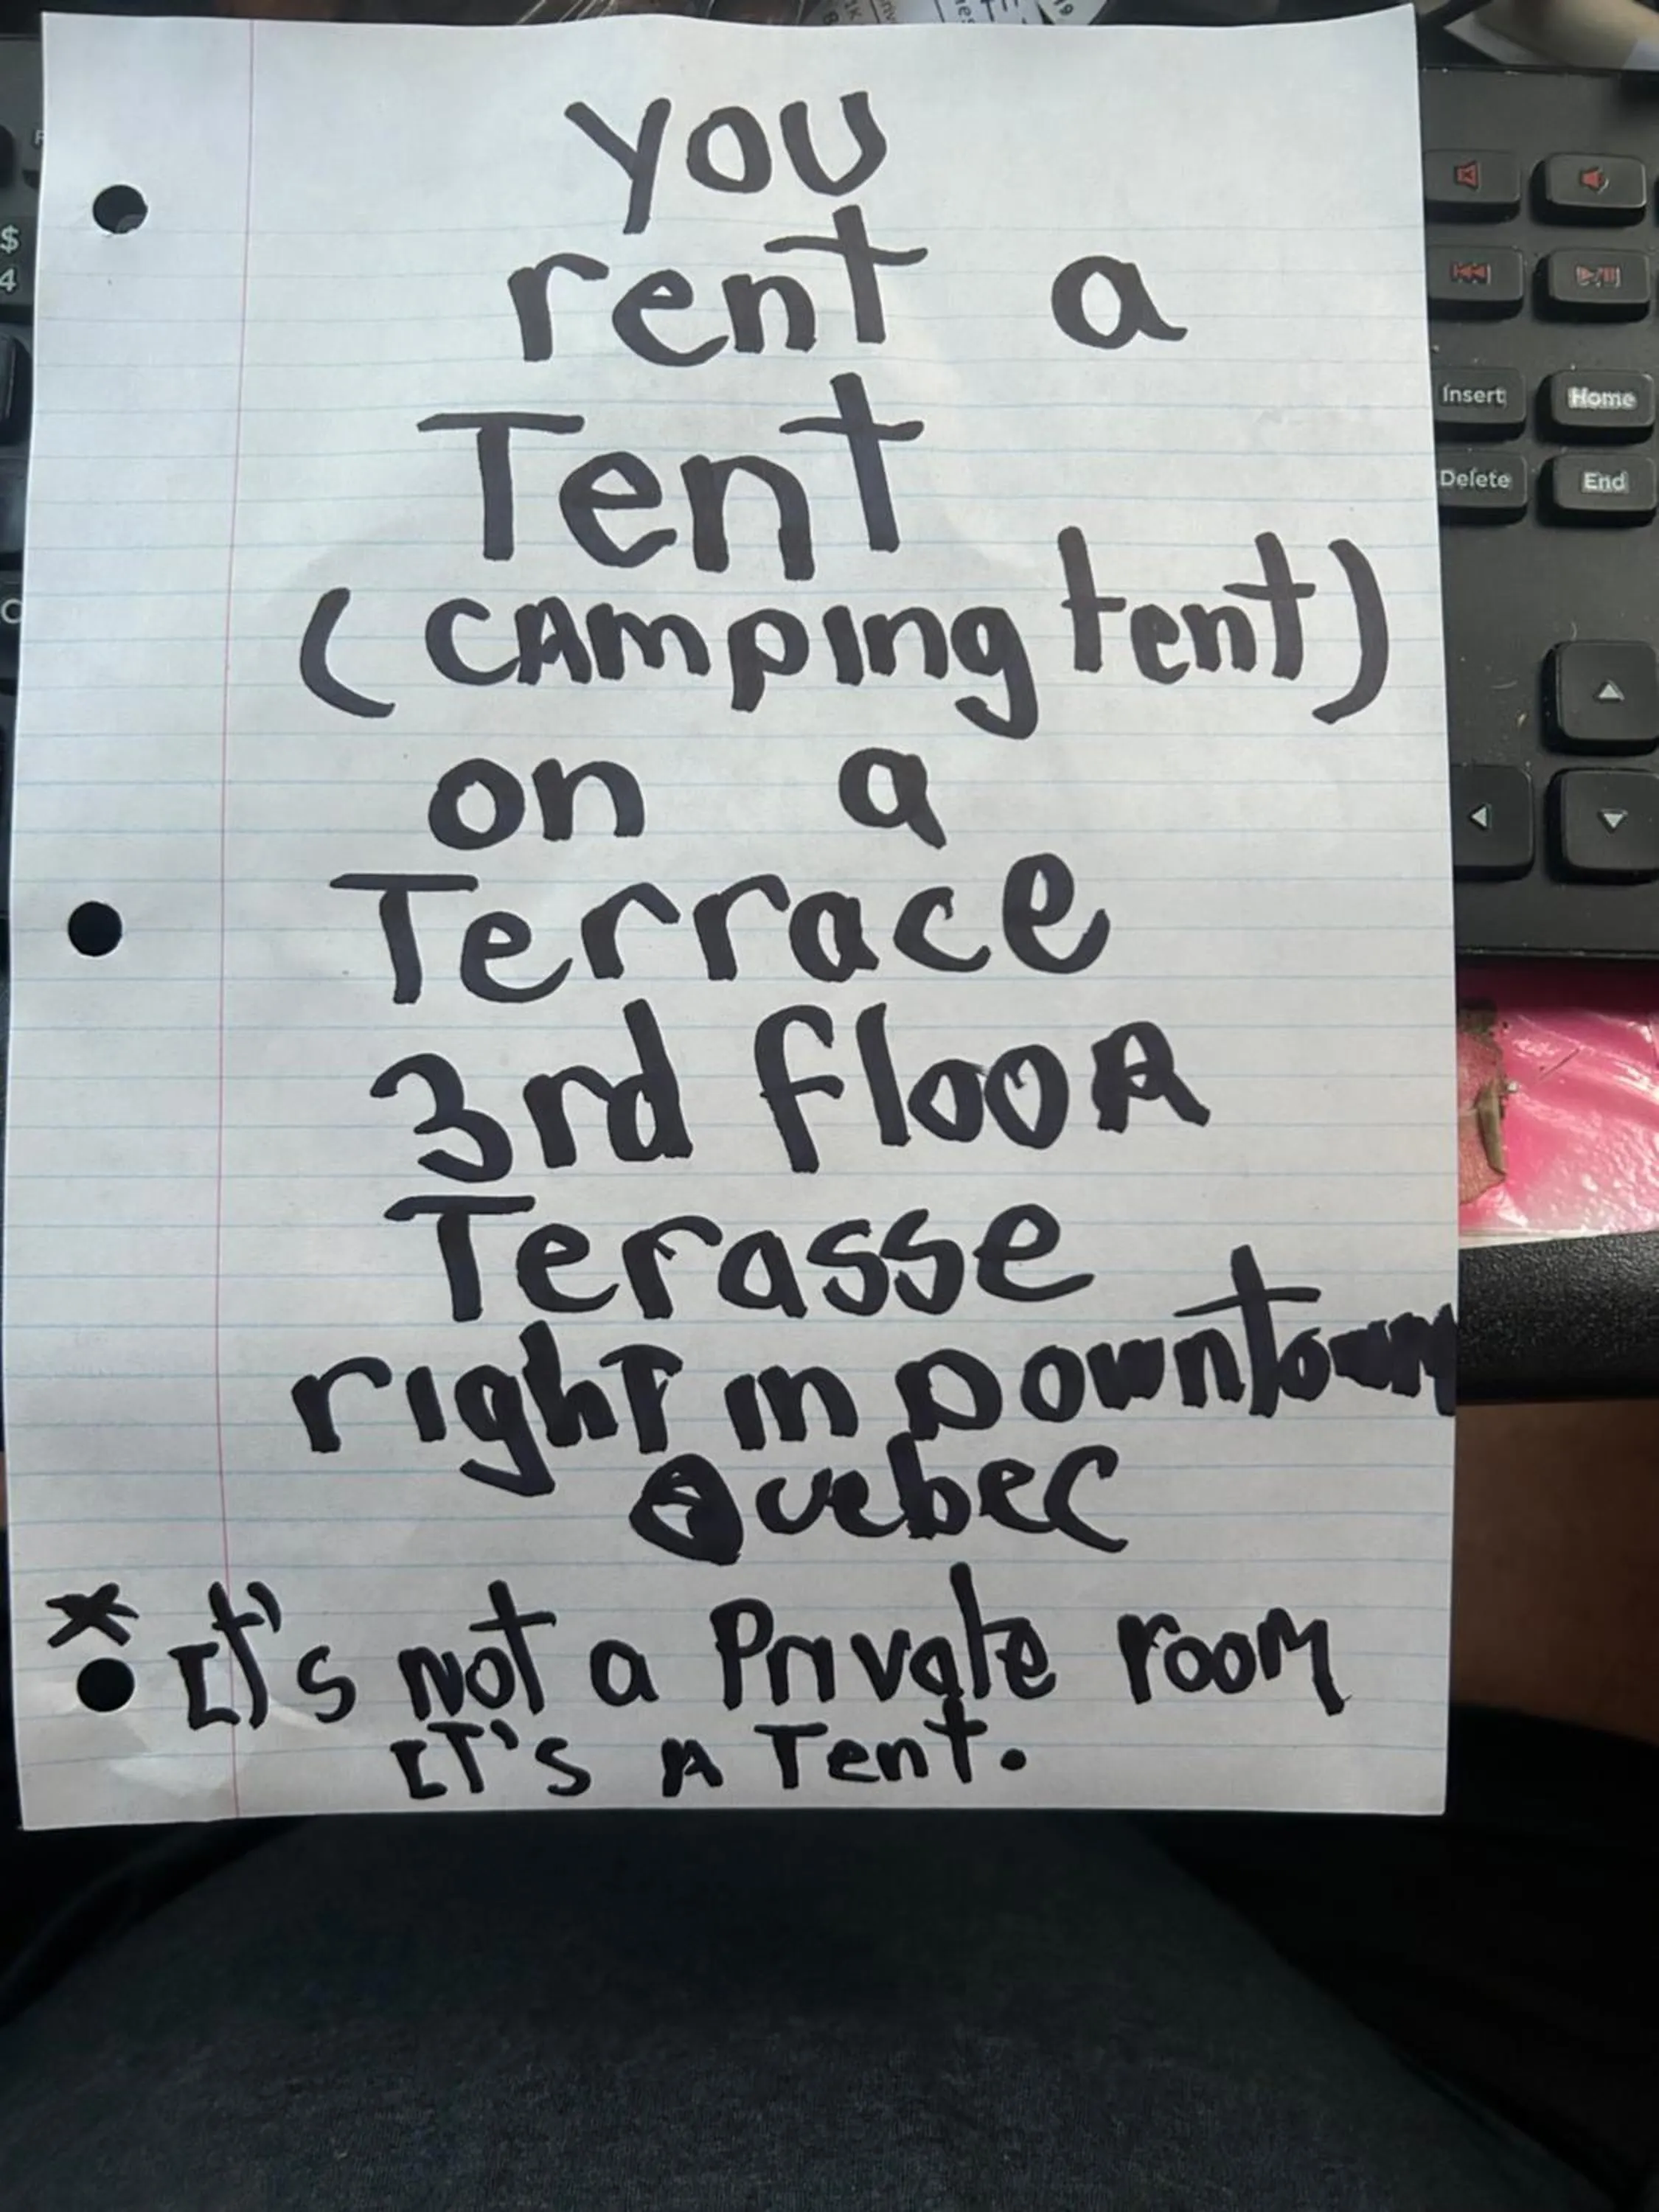 you
rent a
Tent
(CAmping tent)
on a
Terrace
3rd flooR
Terasse
right in Downtown
Quebec
* It's not a Private room
IT'S A Tent.
$
4
Insert
Home
Delete
End